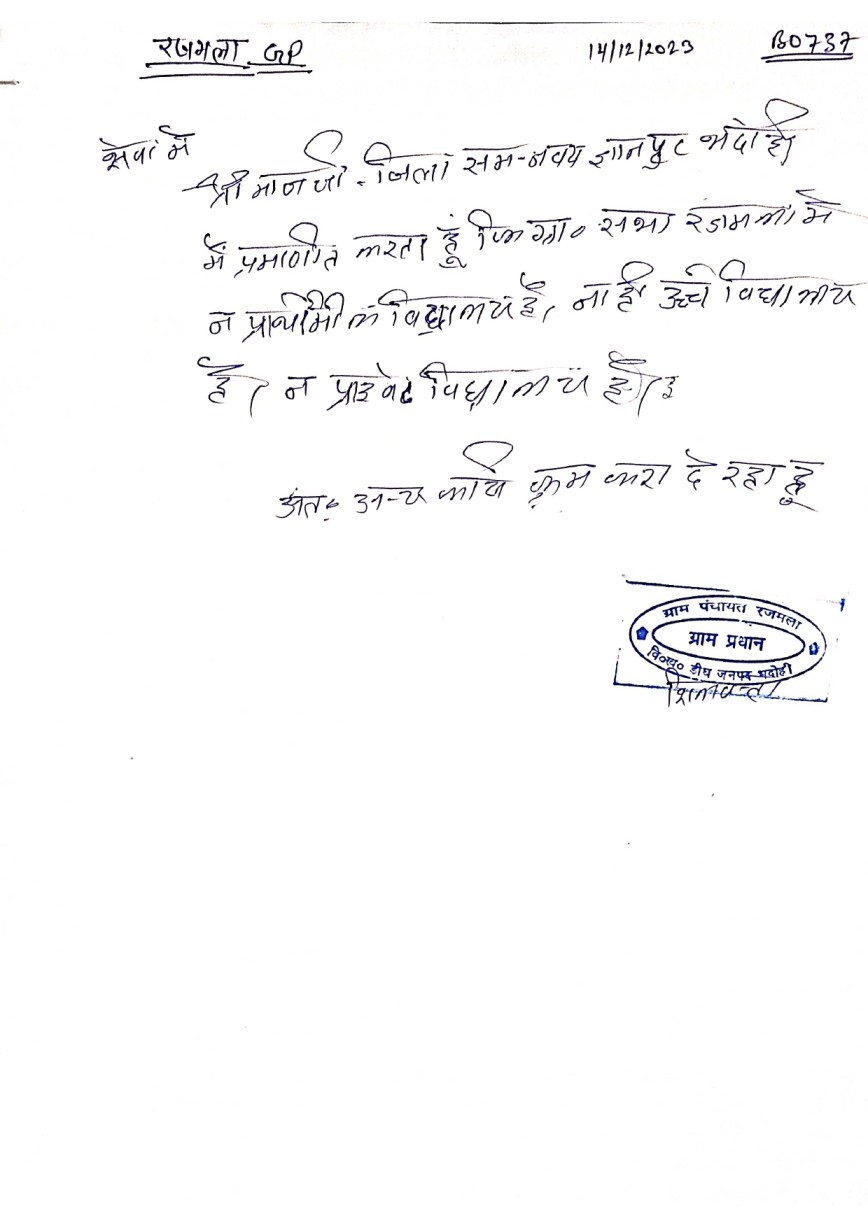 रजमला GP 14/12/2023 B0737
सेवा में
श्री मान जी. जिला समन्वय ज्ञानपुर भदोही
में प्रमाणीत करता हूं कि ग्रा० सभा रजमला में
न प्राथमिक विद्यालय है, ना ही उच्चे विद्यालय
है। न प्राइवेट विद्यालय है।
अतः अन्य कार्य क्रम करा दे रहा हूं
ग्राम पंचायत रजमला
ग्राम प्रधान
वि०ख० डीघ जनपद भदोही